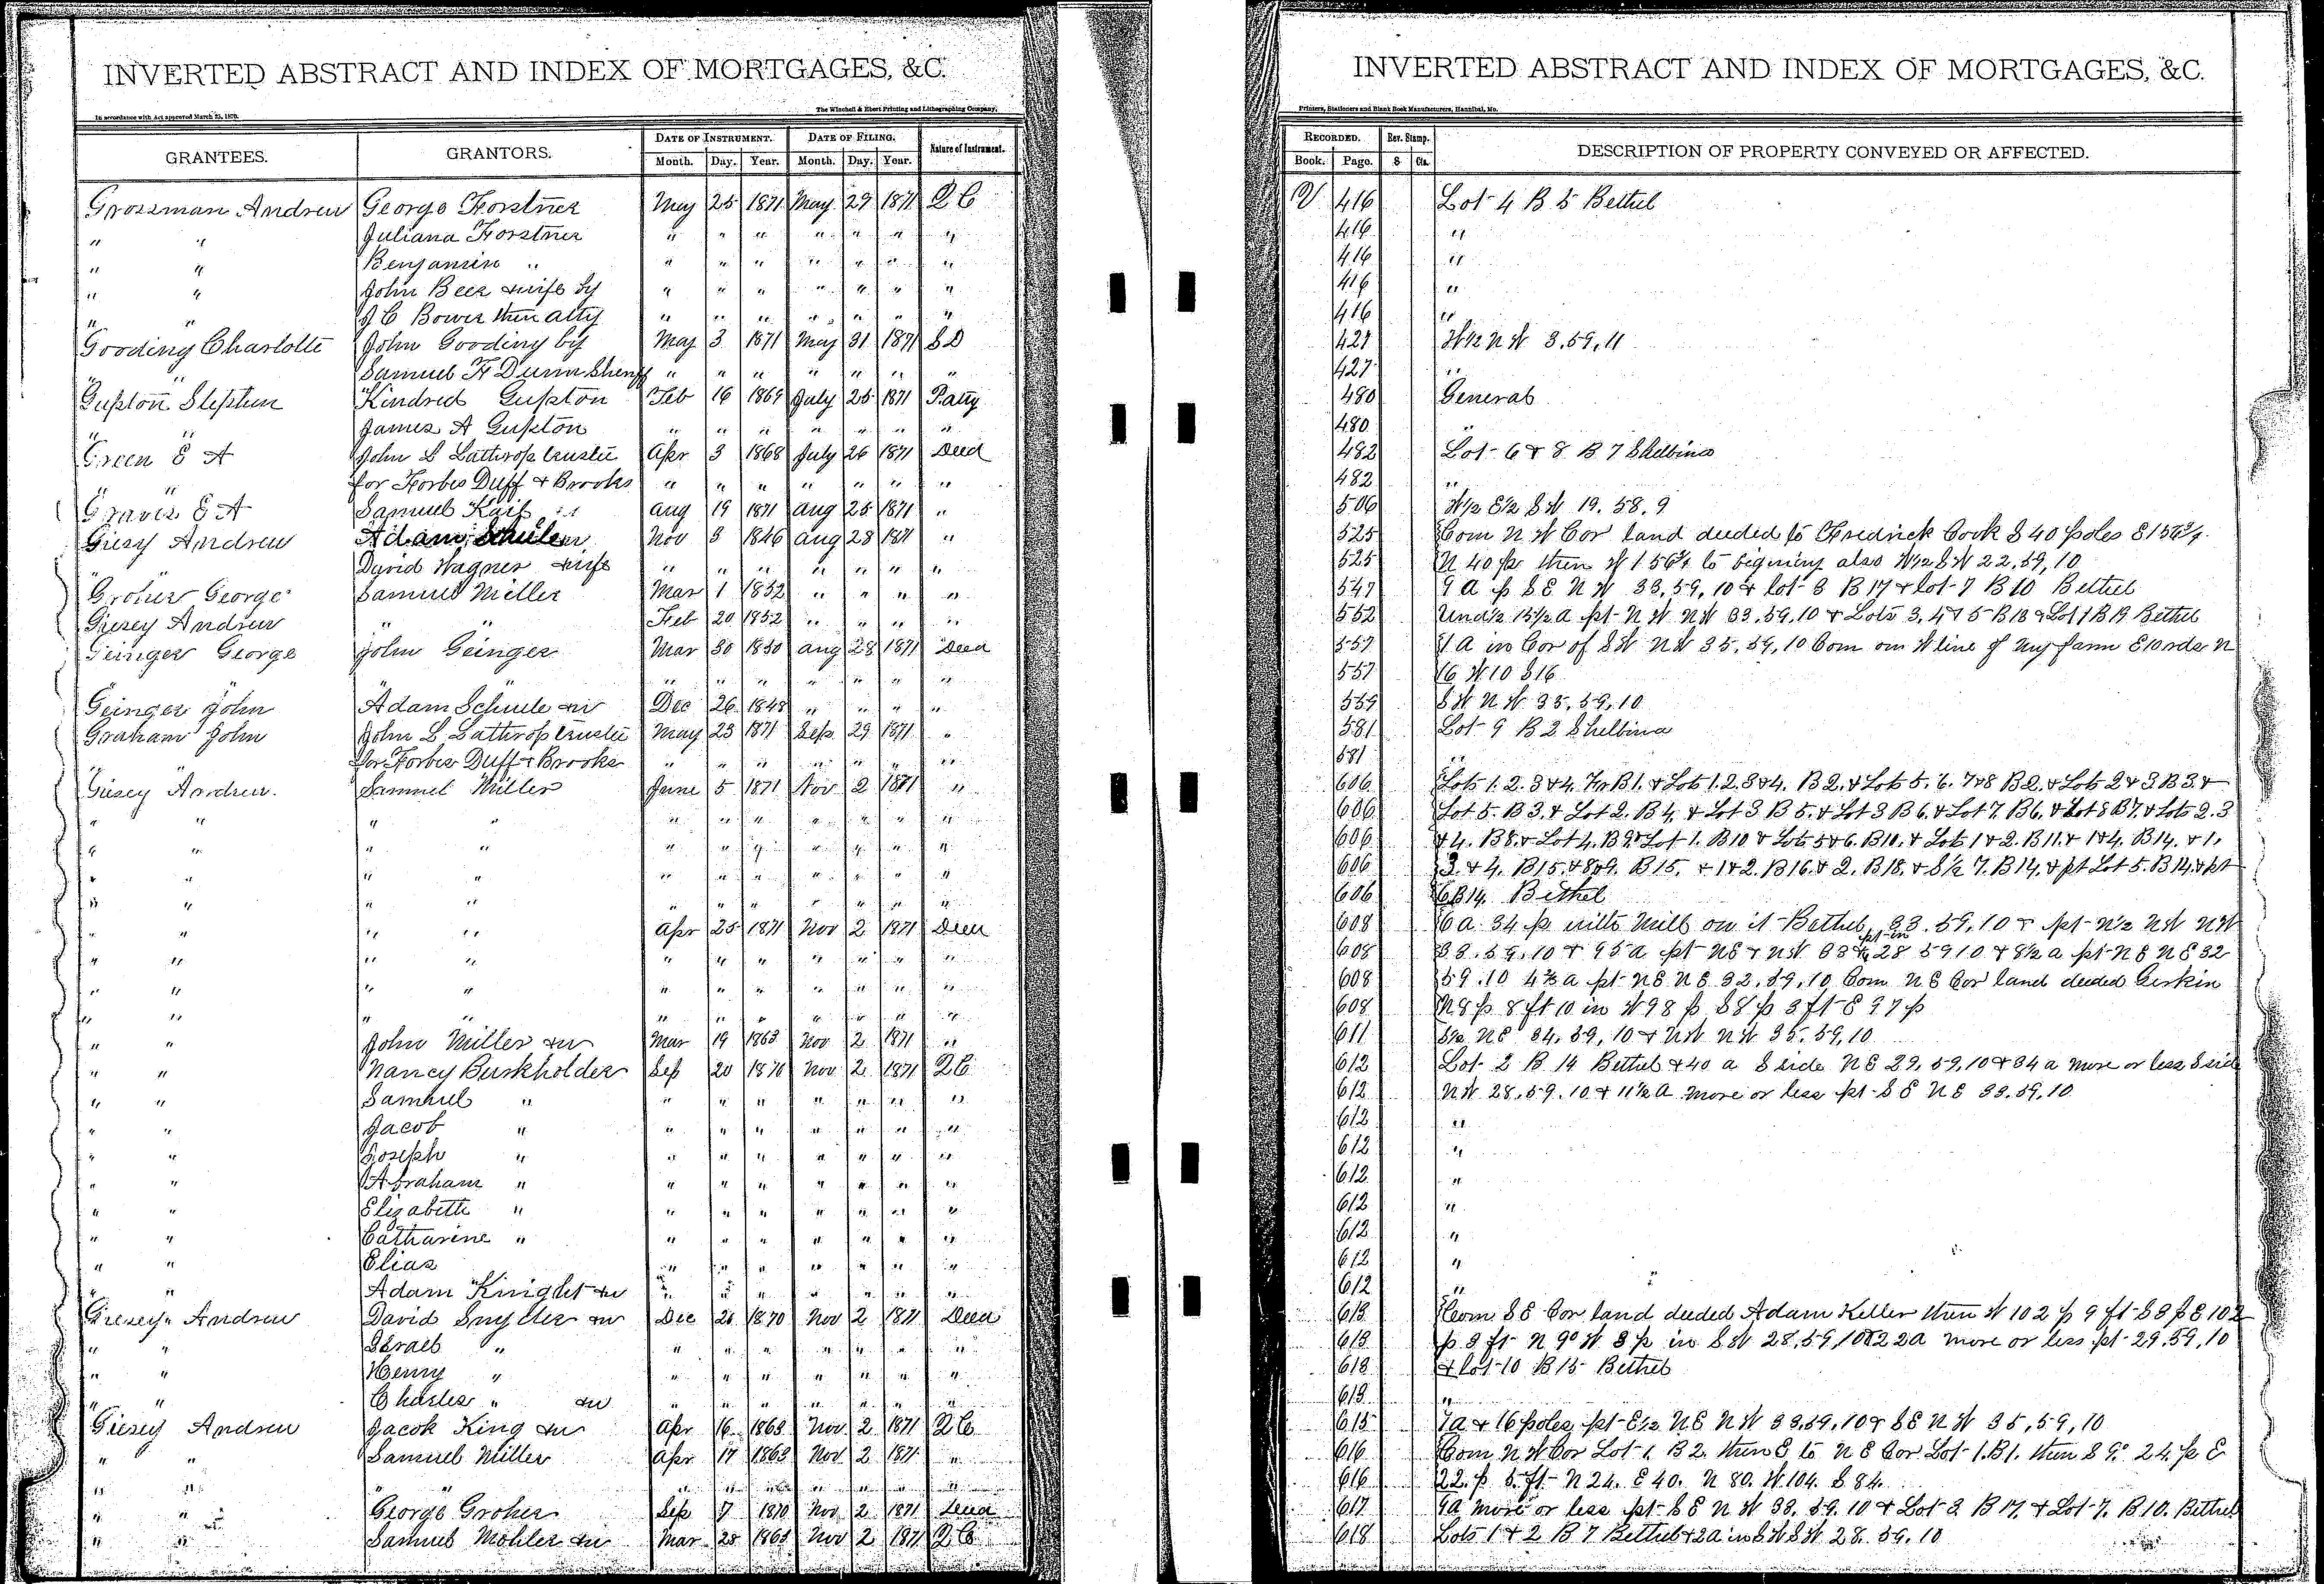 INVERTED ABSTRACT AND INDEX OF MORTGAGES, &C.
The Winchell & Ebert Printing and Lithographing Company,
In accordance with Act approved March 25, 1870.
GRANTEES. GRANTORS. DATE OF INSTRUMENT. DATE OF FILING. Nature of Instrument.
Month. Day. Year. Month. Day. Year.
Grossman Andrew George Forstner May 25 1871 May 29 1871 Q C
" " Juliana Forstner " " " " " " "
" " Benjamin " " " " " " " "
" " John Beer & wife by " " " " " " "
" " J C Bower their atty " " " " " " "
Gooding Charlotte John Gooding by May 3 1871 May 31 1871 S D
" " Samuel F Dunn Sheriff " " " " " " "
Gupton Stephen Kindred Gupton Feb 16 1869 July 25 1871 P. atty
" " James A Gupton " " " " " " "
Green E A John L Lathrop trustee Apr 3 1868 July 26 1871 Deed
" " for Forbes Duff & Brooks " " " " " " "
Graves E A Samuel Aug 19 1871 Aug 25 1871 "
Giesy Andrew Adam Schule Nov 3 1846 Aug 28 1871 "
" " David Wagner & wife " " " " " " "
George Samuel Miller Mar 1 1852 " " " "
Giesey Andrew " " Feb 20 1852 " " " "
Geinger George John Geinger Mar 30 1850 Aug 28 1871 Deed
" " " " " " " " "
Geinger John Adam Schule Dec 26 1848 " " " "
Graham John John L Lathrop trustee May 23 1871 Sep 29 1871 "
" " for Forbes Duff & Brooks " " " " " " "
Giesey Andrew. Samuel Miller June 5 1871 Nov 2 1871 "
" " " " " " " " " " "
" " " " " " " " " " "
" " " " " " " " " " "
" " " " " " " " " " "
" " " " Apr 25 1871 Nov 2 1871 Deed
" " " " " " " " " " "
" " " " " " " " " " "
" " " " " " " " " " "
" " John Miller Mar 19 1863 Nov 2 1871 "
" " Nancy Burkholder Sep 20 1870 Nov 2 1871 Q C
" " Samuel " " " " " " " "
" " Jacob " " " " " " " "
" " Joseph " " " " " " " "
" " Abraham " " " " " " " "
" " Elizabeth " " " " " " " "
" " Catharine " " " " " " " "
" " Elias " " " " " " "
" " Adam Knight " " " " " " "
Giesey Andrew David Snyder Dec 21 1870 Nov 2 1871 Deed
" " Israel " " " " " " " "
" " Henry " " " " " " " "
" " Charles " " " " " " " "
Giesey Andrew Jacob King Apr 16 1863 Nov 2 1871 Q C
" " Samuel Miller Apr 17 1863 Nov 2 1871 "
" " " " " " " " "
" " George Groher Sep 7 1870 Nov 2 1871 Deed
" " Samuel Mohler Mar 25 1863 Nov 2 1871 Q C
INVERTED ABSTRACT AND INDEX OF MORTGAGES, &C.
Printers, Stationers and Blank Book Manufacturers, Hannibal, Mo.
RECORDED. Rev. Stamp. DESCRIPTION OF PROPERTY CONVEYED OR AFFECTED.
Book. Page. $ Cts.
V 416 Lot 4 B 5 Bethel
416 "
416 "
416 "
416 "
427 W½ N W 3.59.11
427 "
480 General
480 "
482 Lot 6 & 8 B 7 Shelbina
482 "
506 W½ E½ S W 19. 58. 9
525 Com N W Cor land deeded to Fredrick Cook S 40 poles E 156¾
525 N 40 p then W 156¾ to begining also W½ S W 22, 59, 10
547 9 A p S E N W 33, 59, 10 & lot 3 B 17 & lot 7 B 10 Bethel
552 Und½ 15½ A pt N W N W 33. 59. 10 & Lots 3. 4 & 5 B 13 & Lot 1 B 19 Bethel
557 1 A in Cor of S W N W 35, 59, 10 Com on W line of my farm E 10 rds N
557 16 W 10 S 16
559 S W N W 35, 59, 10
581 Lot 9 B 2 Shelbina
581 "
606 Lots 1. 2. 3 & 4. B 1. & Lots 1. 2. 3 & 4. B 2. & Lots 5. 6. 7 & 8 B 2. & Lots 2 & 3 B 3 &
606 Lot 5. B 3. & Lot 2. B 4. & Lot 3 B 5. & Lot 3 B 6. & Lot 7. B 6. & Lot 8 B 7. & Lots 2. 3
606 & 4. B 8. & Lot 4. B 9. & Lot 1. B 10 & Lots 5 & 6. B 10. & Lots 1 & 2. B 11. & 1 & 4. B 14. & 1.
606 3. & 4. B 15. & 8 & 9. B 15. & 1 & 2. B 16. & 2. B 18. & S½ 7. B 14. & pt Lot 5. B 14. & pt
606 6 B 14. Bethel
608 6 a. 34 p with Mill on it Bethel, 33. 59, 10 & pt N½ N W N W
608 33. 59, 10 & 95 a pt N E & N W 33 & pt in 28 59 10 & 8½ a pt N E N E 32
608 59. 10 4⅔ a pt N E N E 32, 59, 10 Com N E Cor land deeded Gerkin
608 N 8 p 8 ft 10 in W 98 p S 8 p 3 ft E 97 p
611 S½ N E 34, 59, 10 & N W N W 35. 59, 10
612 Lot 2 B 14 Bethel & 40 a S side N E 29, 59, 10 & 34 a more or less S side
612 N W 28. 59. 10 & 11½ a more or less pt S E N E 33. 59, 10
612 "
612 "
612 "
612 "
612 "
612 "
612 "
613 Com S E Cor land deeded Adam Keller then W 102 p 9 ft S 8 p E 102
613 p 3 ft N 9° W 8 p in S W 28, 59, 10 & 22 a more or less pt 29. 59, 10
613 & lot 10 B 15 Bethel
613 "
615 7 a & 16 poles pt E½ N E N W 33, 59, 10 & S E N W 35, 59, 10
616 Com N W Cor Lot 1. B 2. then E to N E Cor Lot 1. B 1. then S 9° 24. p E
616 22. p 5 ft N 24. E 40. N 80. W 104. S 84.
617 9 a more or less pt S E N W 33. 59. 10 & Lot 3 B 17. & Lot 7. B 10. Bethel
618 Lots 1 & 2 B 7 Bethel & 2 a in S W S W 28. 59. 10